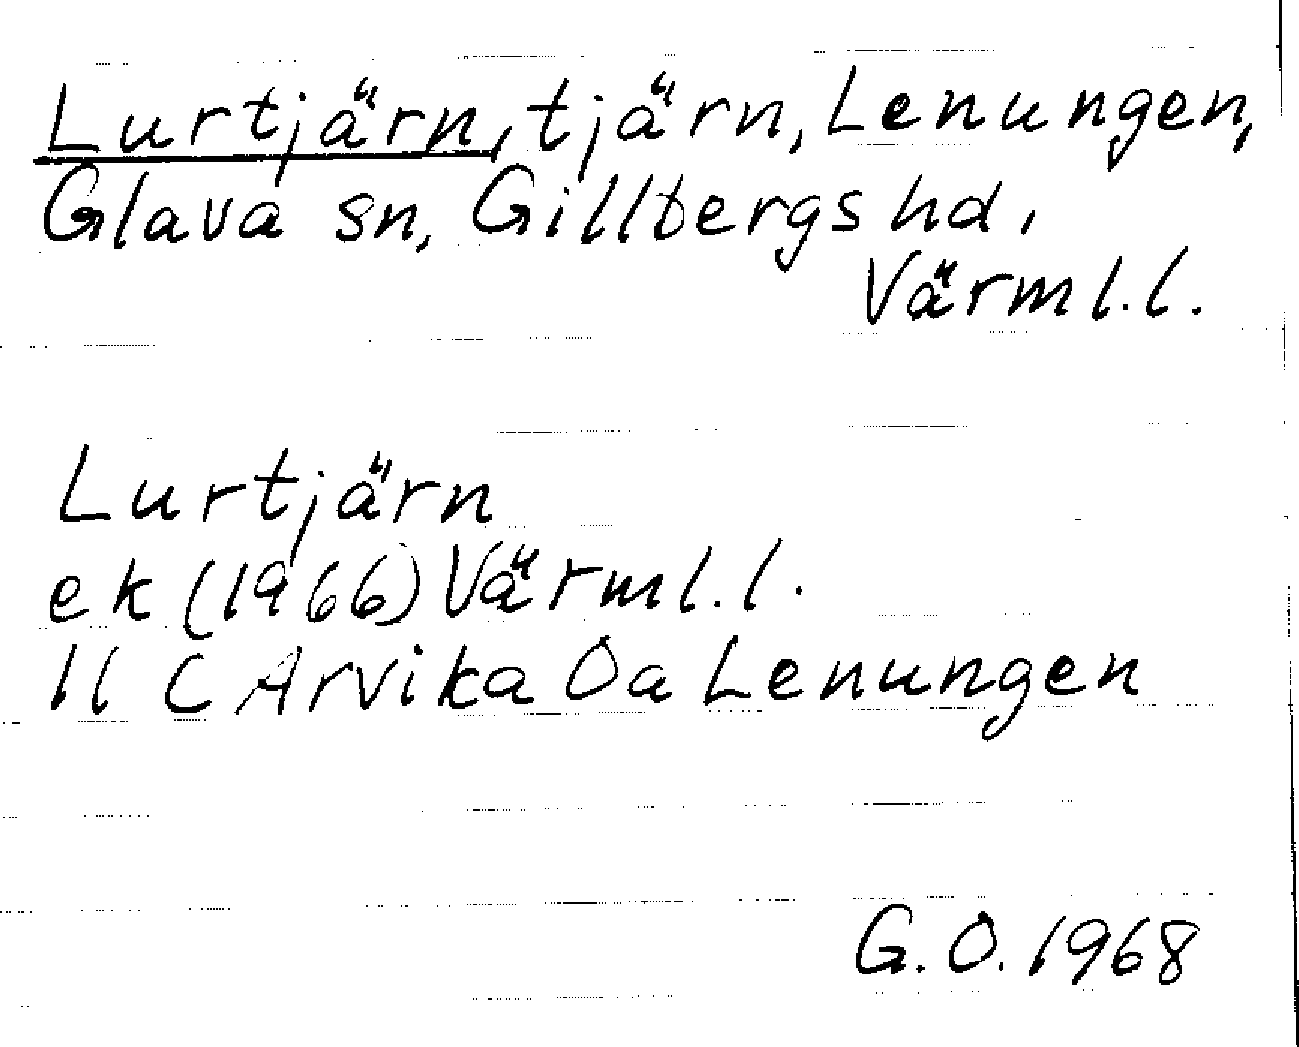 Lurtjärn, tjärn, Lenungen,
Glava sn, Gillbergs hd,
Värml.l.
Lurtjärn
ek (1966) Värml.l.
11 C Arvika 0a Lenungen
G.O. 1968